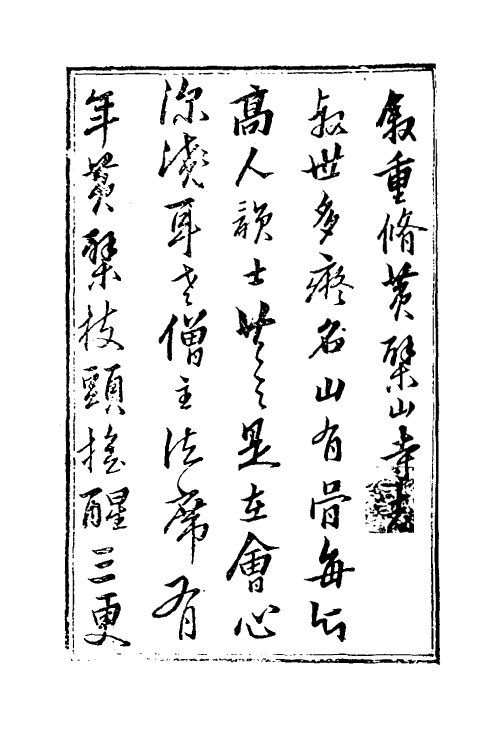 敘重脩黃檗山寺志
叔世多癡名山有骨每
高人韻士是在會心
深淺耳老僧主法席有
年黃檗枝頭搖醒三更